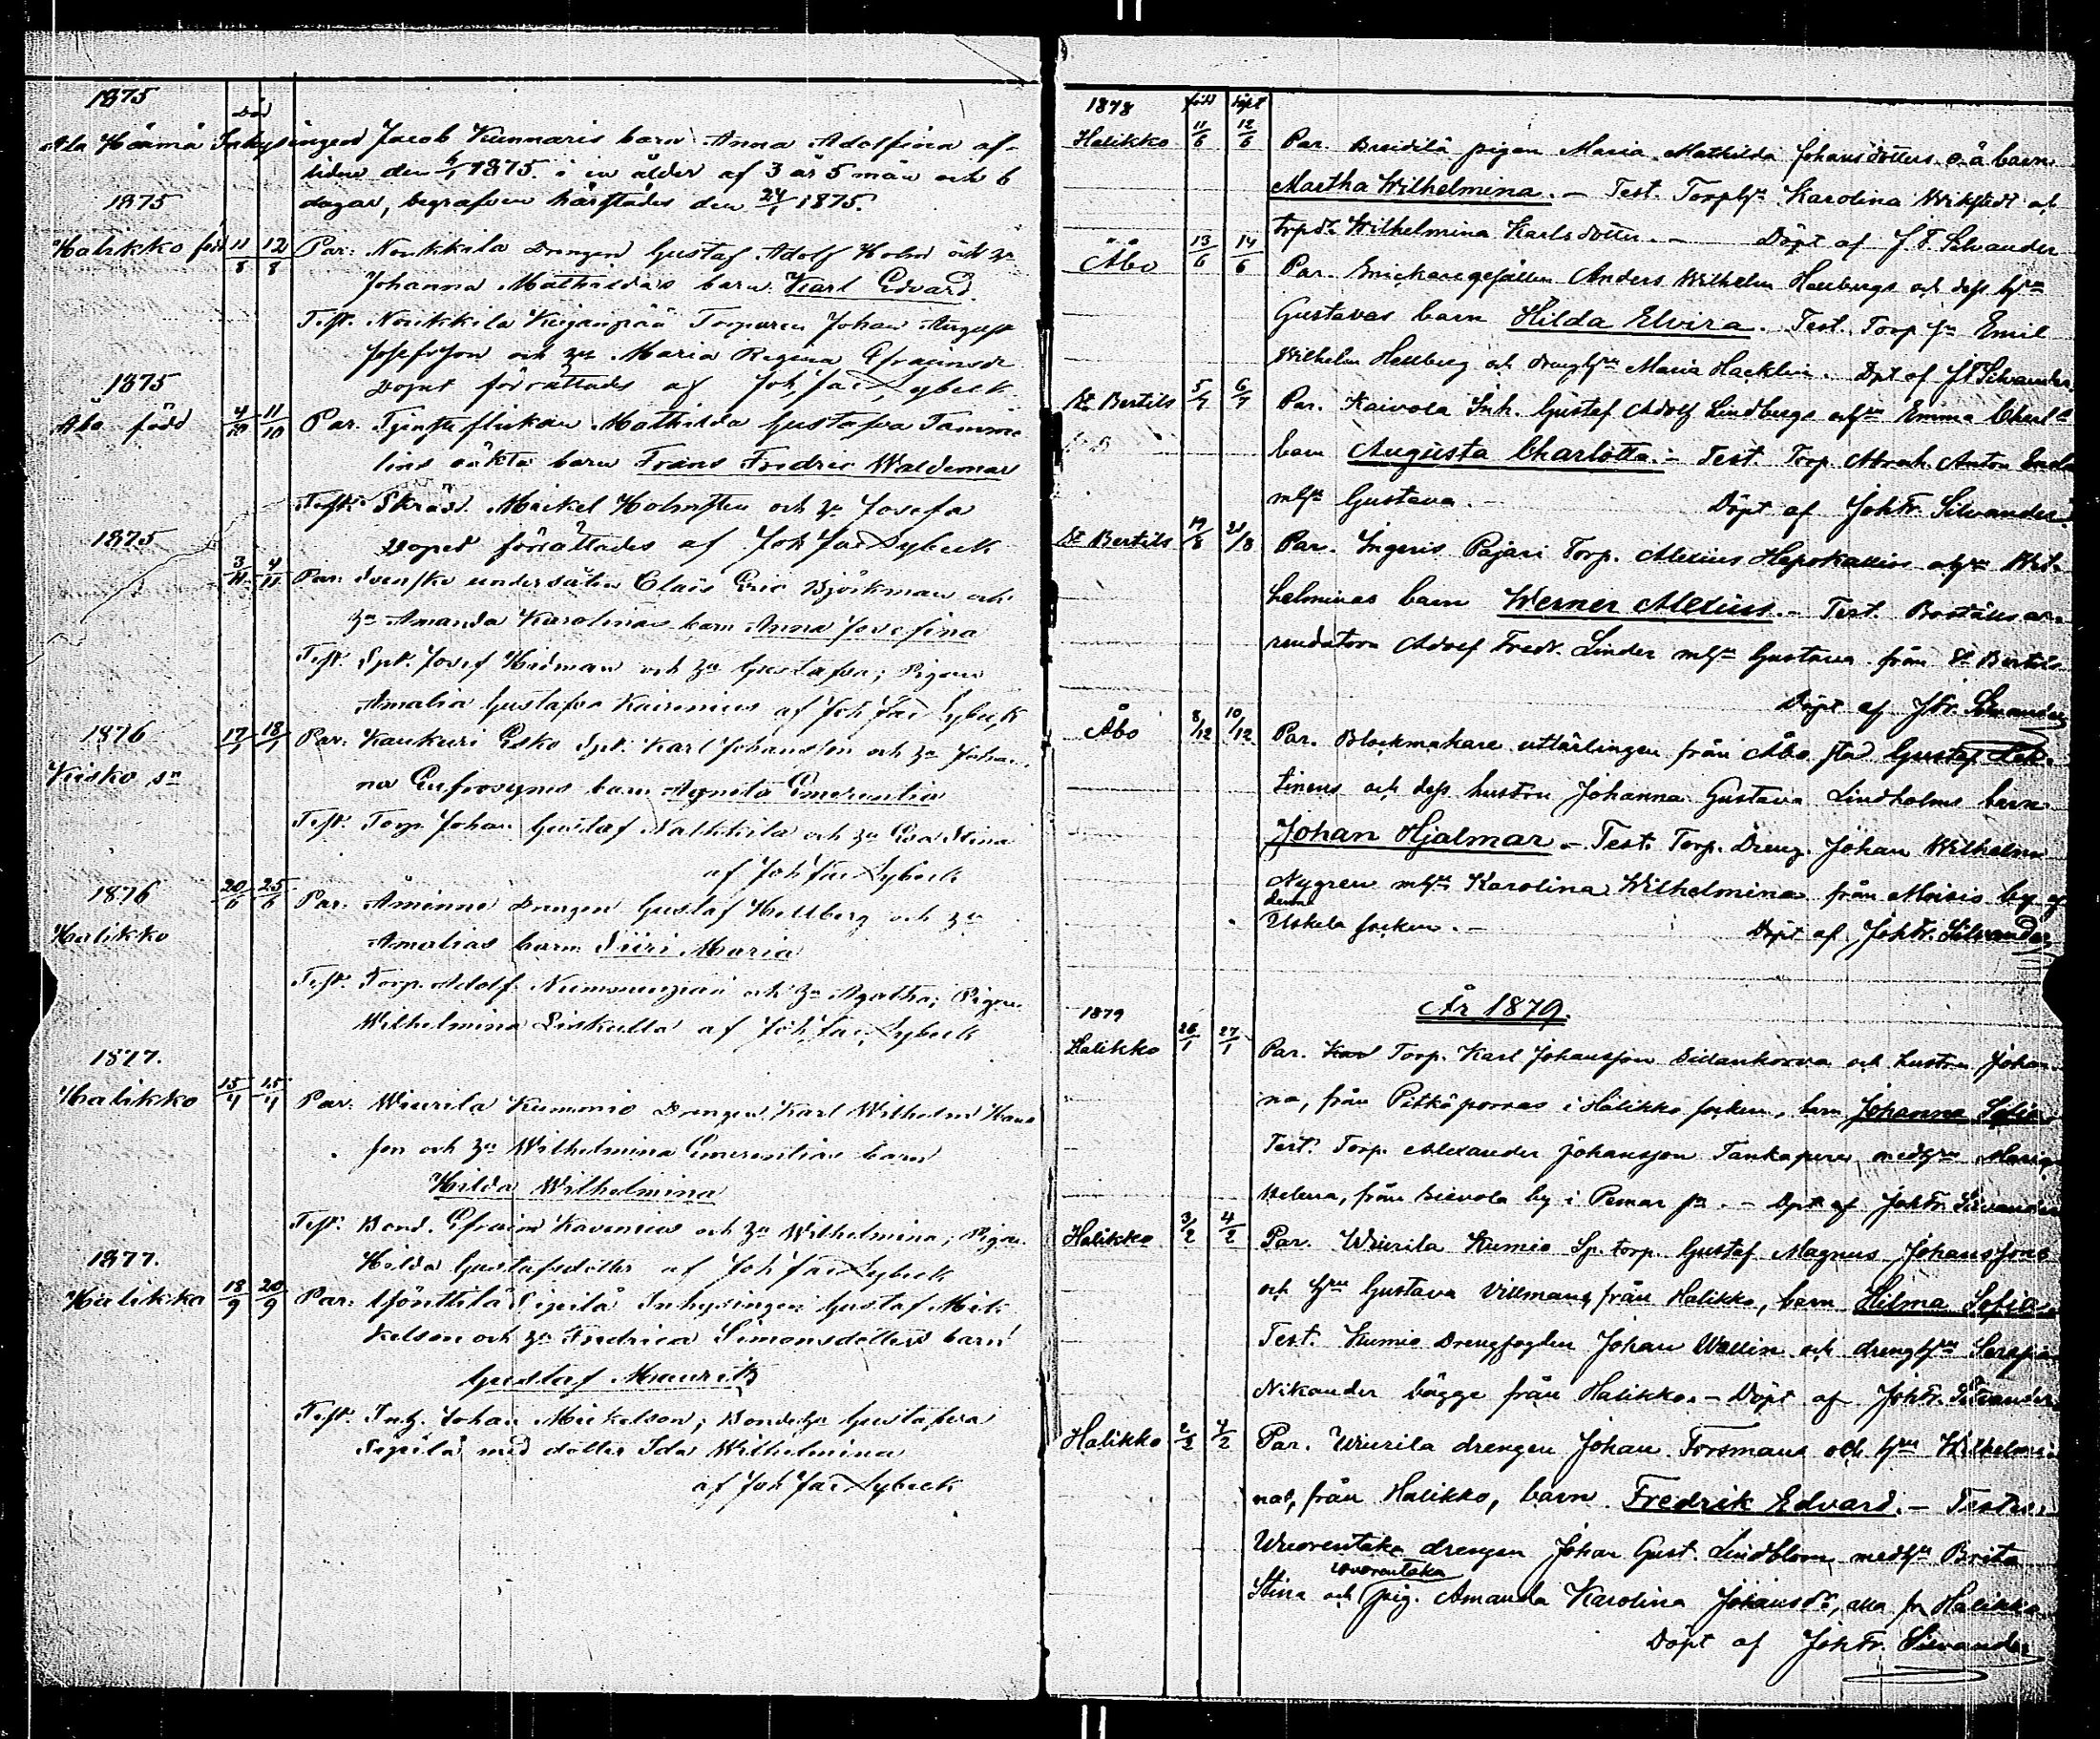 1875
död
Ala Härmä Inhysingen Jacob Kunnaris barn Anna Adolfina af-
liden den 6/1 1875 i en ålder af 3 år 5 mån och 6
dagar, begrafven härstädes den 24/1 1875.
1875
Halikko född 11/8 12/8 Par: Nonkkila Drengen Gustaf Adolf Holm och h:u
Johanna Mathildas barn Karl Edvard
Test. Nonkkila Torparen Johan August
Josefsson och h:u Maria Regina Efraimsdr
Dopet förrättades af Joh. Jac. Lybeck
1875
Åbo född 4/10 11/10 Par. Tjensteflickan Mathilda Gustafva Tamme-
lins oäkta barn Frans Fredric Waldemar
Test. Skräd. Mickel Holmsten och h:u Josefa
Dopet förrättades af Joh Jac Lybeck
1875
3/11 4/11 Par: Svenske undersåten Claes Eric Björkman och
h:u Amanda Karolinas barn Anna Josefina
Test. Spt. Josef Hedman och h:u Gustafva; Pigan
Amalia Gustafva af Joh Jac Lybeck
1876 17/1 18/1 Par. Kaukuri Esko Spt. Karl Johansson och h:u Johan-
Kisko sn
na Eufrosynes barn Agneta Emerentia
Test. Torp. Johan Gustaf och h:u Eva Stina
af Joh Jac Lybeck
1876 20/6 25/6 Par. Åminne Drengen Gustaf Hellberg och h:u
Halikko
Amalias barn Siiri Maria
Test. Torp. Adolf och h:u Agatha; Pigan
Wilhelmina af Joh Jac Lybeck
1877.
Halikko 15/4 15/4 Par: Wiurila Kummio Drengen Karl Wilhelm Hans
son och h:u Wilhelmina Emerentias barn
Hilda Wilhelmina
Test. Bond. Efraim och h:u Wilhelmina; Pigan
1877. Hilda Gustafsdotter af Joh Jac Lybeck
Halikko 18/9 20/9 Par: Sipilä Inhysingen Gustaf Mik-
kelson och h:u Fredrica Simonsdotters barn
Gustaf Mauritz
Test. Inh. Johan Mickelson; Bondeh:u Gustafva
Sipilä med dotter Ida Wilhelmina
af Joh Jac Lybeck
1878 född döpt
Halikko 11/6 12/6 Par. Bredilä pigan Maria Mathilda Johansdotters o.ä barn
Martha Wilhelmina. - Test. Torphu Karolina Wikstedt och
torpd. Wilhelmina Karlsdotter. - Döpt af J. F. Silvander
Åbo 13/6 14/6 Par. Snickaregesällen Anders Wilhelm Hellbergs och dess h:u
Gustavas barn Hilda Elvira. Test. Torp. sn Emil
Wilhelm Hellberg och drengh:u Maria Hacklin. Dpt af J F Silvander
St. Bertils 5/7 6/7 Par. Kaivola Inh. Gustaf Adolf Lindbergs och h:u Emma Charl:a
barn Augusta Charlotta. - Test. Torp. Abrah. Anton
m h:u Gustava. - Döpt af Joh Fr. Silvander
St. Bertils 19/8 21/8 Par. Ingeris Pajari Torp. Alexius Hepokallios och h:u Wil-
helminas barn Werner Alexius. - Test. Boställs ar-
rendatorn Adolf Fredr. Linder m h:u Gustava från St Bertils
Döpt af J Fr. Silvander
Åbo 8/12 10/12 Par. Blockmakare uttärlingen från Åbo stad Gustaf Leh-
tinens och dess hustru Johanna Gustava Lindholms barn
Johan Hjalmar - Test. Torp. Dreng. Johan Wilhelm
Nygren m h:u Karolina Wilhelmina från Moisio by af
denna
Uskela socken. - Döpt af Joh Fr. Silvander
År 1879.
1879
Halikko 26/1 27/1 Par. Torp. Karl Johansson Sillankorva och hustru Johan-
na, från Pitkäporras i Halikko socken, barn Johanna Sofia
Test. Torp. Alexander Johansson Tankapuro med h:u Maria
Helena, från by i Pemar sn. - Dpt af Joh Fr. Silvander
Halikko 3/2 4/2 Par. Wiurila Kumio Sp. torp. Gustaf Magnus Johanssons
och h:u Gustava Villmans, från Halikko, barn Hilma Sofia.
Test. Kumio Drengfogden Johan Wallin och drengh:u Serafia
Nikander bägge från Halikko. - Döpt af Joh Fr. Silvander
Halikko 2/2 4/2 Par. Wiurila drengen Johan Forsmans och h:u Wilhelmi-
nas, från Halikko, barn Fredrik Edvard. - Testes.
Wuorentaka drengen Johan Gust. Lindblom med h:u Brita
Wuorentaka
Stina och pig. Amanda Karolina Johansdr, alla fr Halikko.
Döpt af Joh Fr. Silvander